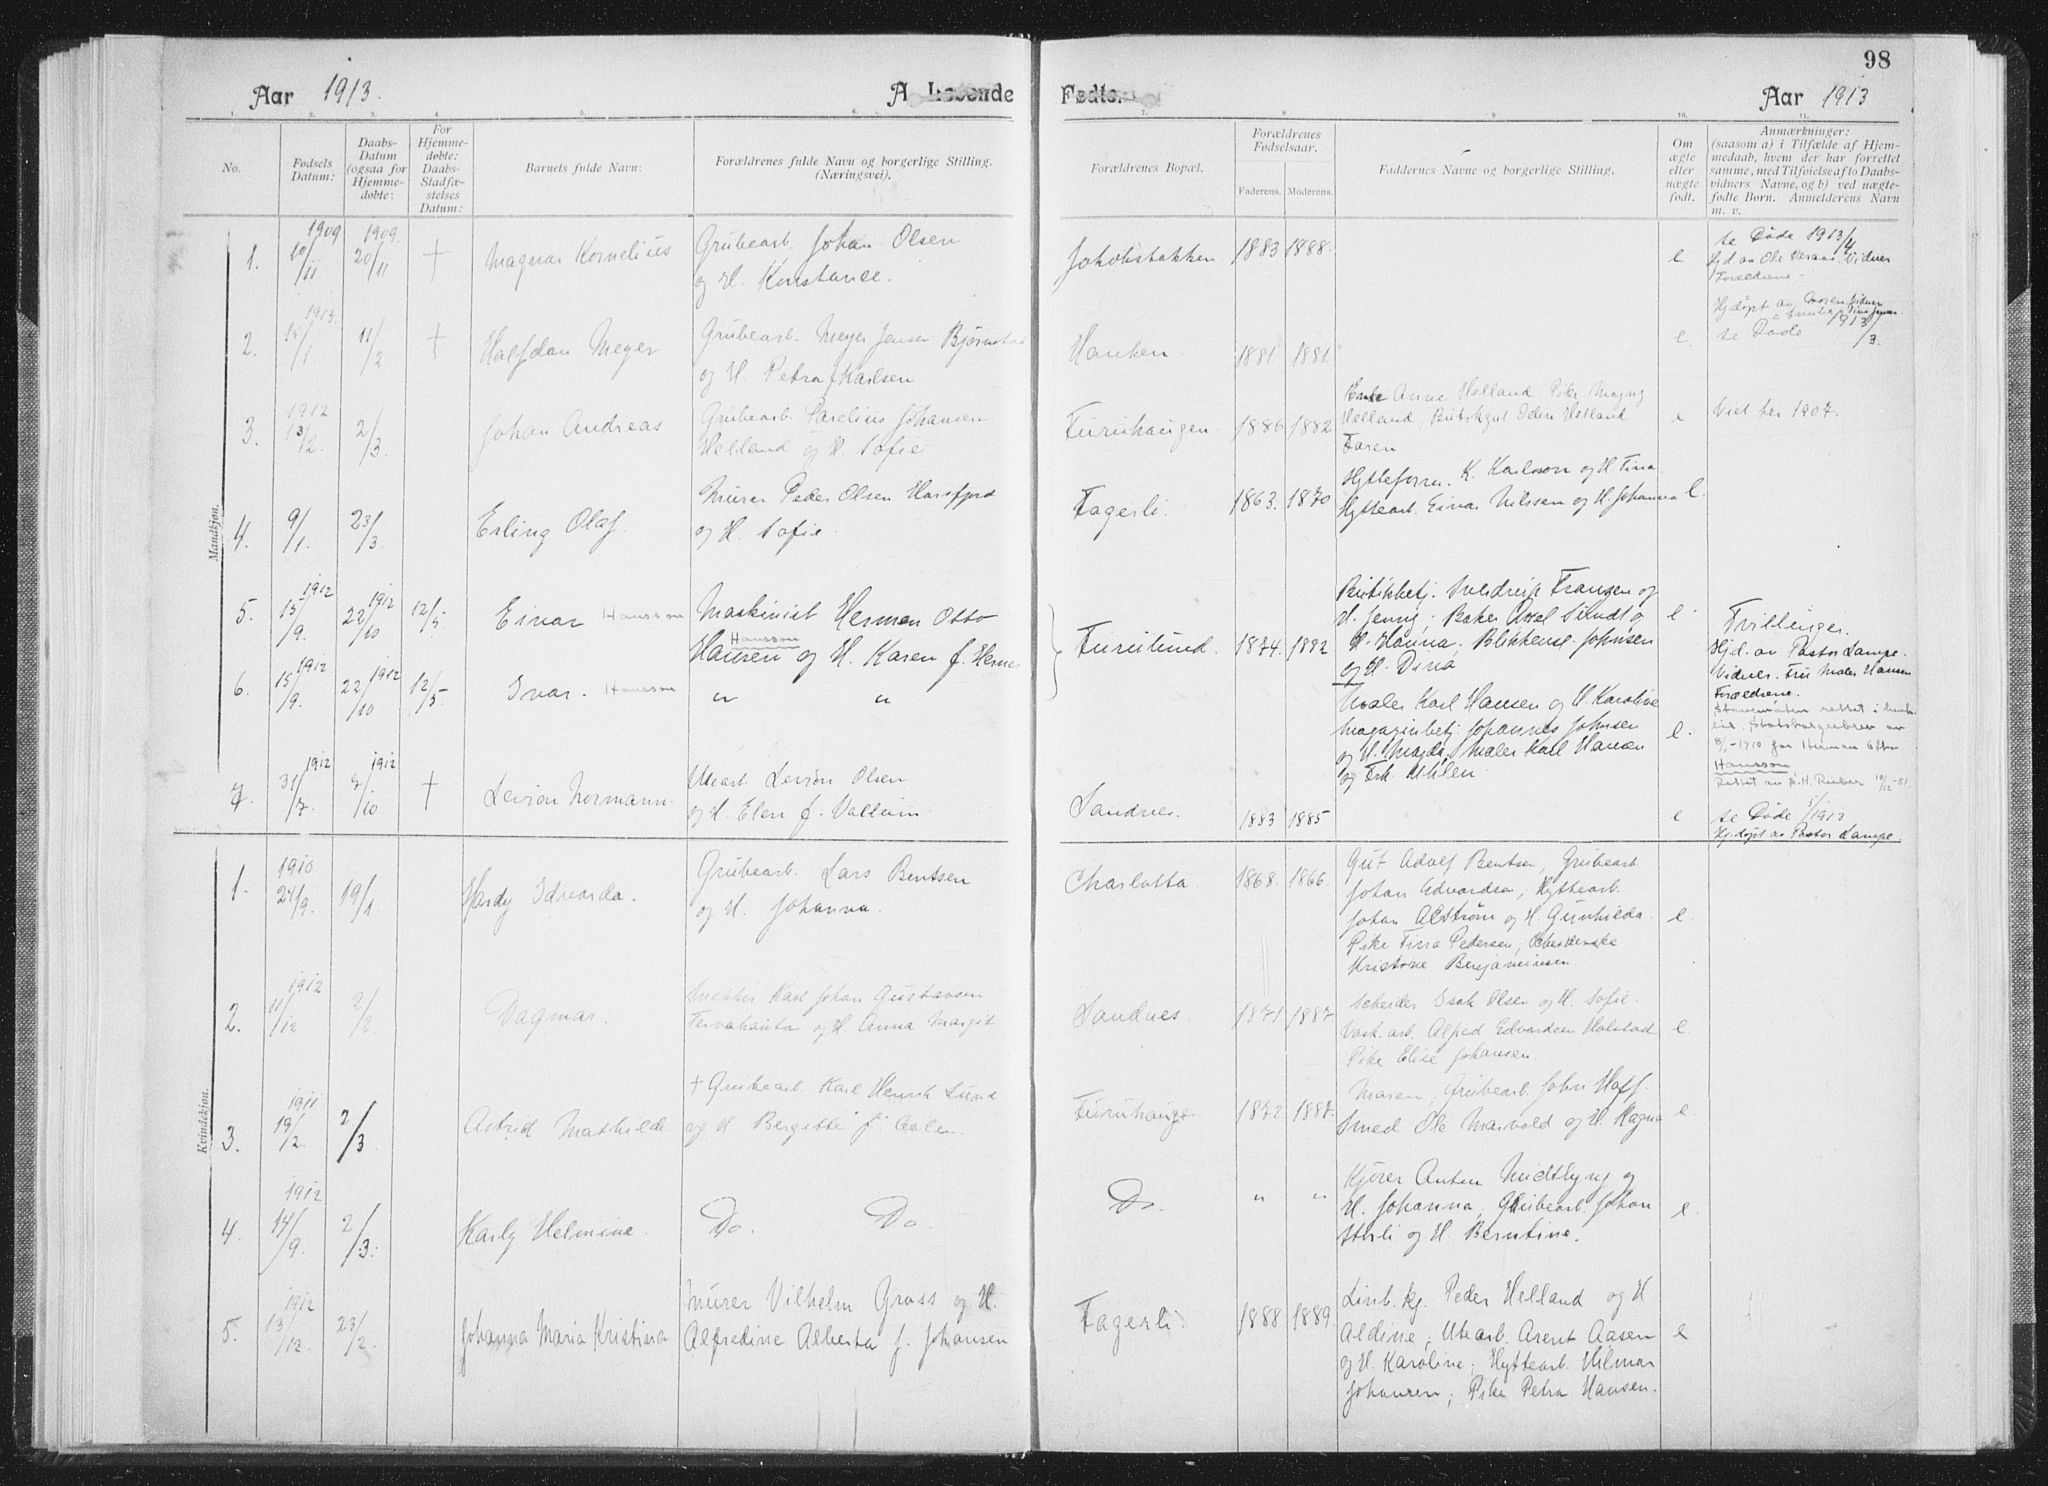 98
Aar 1913.
A. Levende Fødte.
Aar 1913
1. 2. 3. 4. 5. 6. 7. 8 9 10. 11.
No.
Fødsels Datum:
Daabs-Datum (ogsaa for Hjemme-døbte:
For Hjemme-døbte: Daabs-Stadfæ-stelses Datum:
Barnets fulde Navn:
Forældrenes fulde Navn og borgerlige Stilling.
(Næringsvei).
Forældrenes Bopæl.
Forældrenes Fødselsaar.
Faderens. Moderens.
Faddernes Navne og borgerlige Stilling.
Om ægte eller nægte født.
Anmærkninger:
(saasom a) i Tilfælde af Hjem-
medaab, hvem der har forrettet
samme, med Tilføielse af to Daabs-
vidners Navne, og b) ved nægte-
fødte Børn. Anmelderens Navn
m. v.
Mandkjøn.
1. 1909 10/11 1909. 20/11 + Magnar Kornelius
Grubearb. Johan Olsen
og H. Konstance.
Jakobsbakken 1883 1888. e
se Døde 1913/4
Hjd. av Ole Vidner
Forældrene.
2. 1913. 15/1 11/2 + Halfdan Meyer
Grubearb. Meyer Jensen
og H. Petra f. Karlsen
Hanken. 1881. 1881 e.
Hjdøpt av Moren
se Døde 1913/3.
3. 1912 13/12. 2/3. Johan Andreas
Grubearb. Parelius Johansen
Helland og H. Sofie
Furuhaugen. 1886 1882
Enke Anne Helland Pike Magny
Helland, Butikgut Oden Helland
Faren
e Viet her 1907.
4. 9/1. 23/3. Erling Olaf.
Murer Peder Olsen Harefjord
og H. Sofie.
Fagerli. 1863. 1870
Hytteform. K. Karlsson og H. Tina
Hyttearb. Einar Nilssen og H. Johanna e.
5. 1912 15/9. 1912 22/10 12/5. Einar Hansson
Maskinist Herman Otto
Hansson
Hansen og H. Karen f.
Furulund. 1874. 1892
Butikbetj. Sverdrup Fransen og
H. Jenny; Baker Axel
H. Hanna; Blikkensl. Johnsen
og H. Dina
e.
Tvillinger.
Hjd. av Pastor Lampe.
Vidner. Fru Maler Hansen
Forældrene.
6. 1912 15/9. 1912 22/10 12/5. Ivar. Hansson
" "
Maler Karl Hansen og H. Karoline
Magasinbetj. Johannes Johnsen
og H. Magda, Maler Karl Hansen
og Frk. Uhlen.
e.
Stavemåten rettet i henh.
til Statsborgerbrev av
8/1-1910 for Herman Otto
Hansson
Rettet av H. Rieber 10/12-51.
7. 1912 31/7. 1912 7/10 + Leiron Normann.
Utearb. Leiron Olsen
og H. Elen f.
Sandnes. 1883 1885 e
se Døde 5/1913
Hj.døpt av Pastor Lampe
Kvindekjøn.
1. 1910 24/9. 19/1 Hardy Edvarda.
Grubearb. Lars Bentsen
og H. Johanna.
Charlotta. 1868. 1866.
Gut Adolf Bentsen, Grubearb.
Johan Edvardsen; Hyttearb.
Johan Alstrøm og H. Gunhilda.
Pike Tina Pedersen;
Kristine Benjaminsen
e.
2. 1912 11/12 2/2. Dagmar.
Snekker Karl Johan Gustavsen
Tervahauta og H. Anna Margit
Sandnes. 1871 1887
Arbeider Isak Olsen og H. Sofie.
Vask. arb. Alfred Edvardsen Holstad
Pike Elise Johansen.
e
3. 1911 19/2. 2/3 Astrid Mathilde
+ Grubearb. Karl Henrik Lund
og H Bergitte f. Aalen.
Furuhaugen 1872 1887.
Moren, Grubearb. John Hoff.
Smed Ole Marvold og H. Magna
e.
4. 1912 14/9. 2/3. Karly Helmine.
Do. Do.
Do. " "
Kjører Anton Midtlyng og
H. Johanna, Grubearb. Johan
Sterli og H. Berntine.
e.
5. 1912 13/12. 23/2. Johanna Maria Kristina
Murer Vilhelm Grass og H.
Alfredine Alberta f. Johansen
Fagerli. 1888 1889.
Linb. kj. Peder Helland og H
Aldine; Utearb. Arent Aasen
og H. Karoline; Hyttearb. Hilmar
Johansen; Pike Petra Hansen.
e